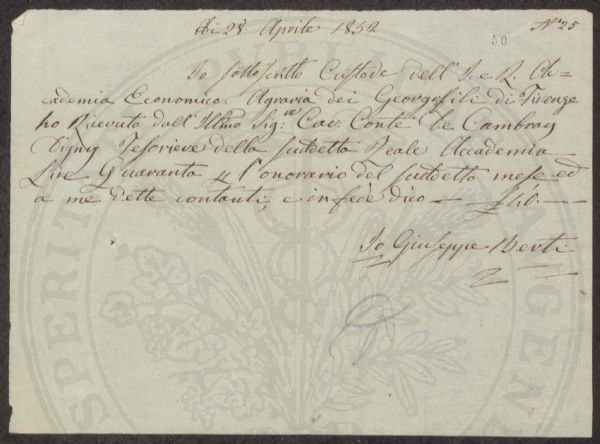 Adi 28. Aprile 1852
N.º 25
50
Io sottoscritto Custode dell'I. e R. Ac=
cademia Economico-Agraria dei Georgofili di Firenze
ho Ricevuto dall'Illmo Sig:re Cav: Conte de Cambray
Digny Tesoriere della suddetta Reale Accademia
Lire Quaranta p l'onorario del suddetto mese ed
a me dette contanti, e in fede dico — £ 40. —
Io Giuseppe Berti